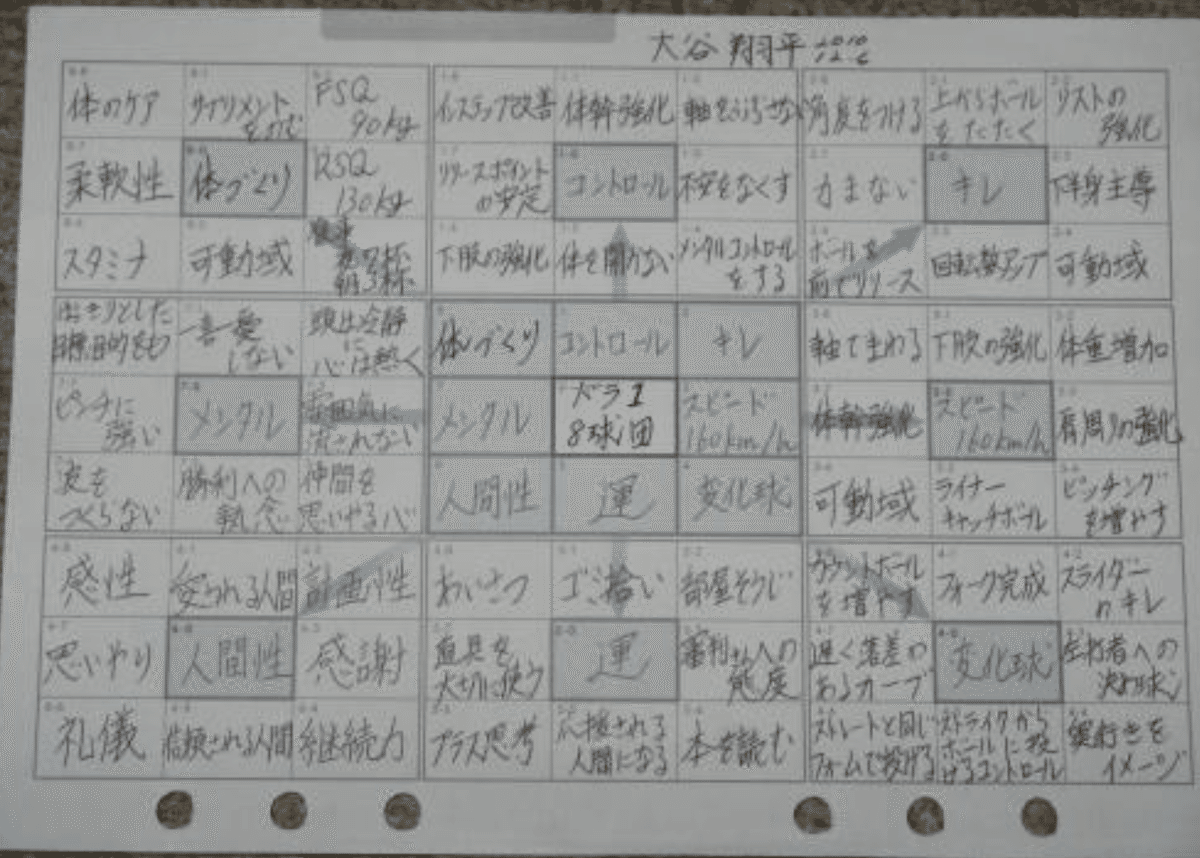 大谷 翔平 2010
12.6
体のケア
サプリメント
をのむ
FSQ
90kg
柔軟性
体づくり
RSQ
130kg
スタミナ
可動域
食事
夜7杯
朝3杯
インステップ改善
体幹強化
軸をぶらさない
リリースポイント
の安定
コントロール
不安をなくす
下肢の強化
体を開かない
メンタルコントロール
をする
角度をつける
上からボール
をたたく
リストの
強化
力まない
キレ
下半身主導
ボールを
前でリリース
回転数アップ
可動域
はっきりとした
目標、目的をもつ
一喜一憂
しない
頭は冷静
に
心は熱く
ピンチに
強い
メンタル
雰囲気に
流されない
波を
つくらない
勝利への
執念
仲間を
思いやる心
体づくり
コントロール
キレ
メンタル
ドラ1
8球団
スピード
160km/h
人間性
運
変化球
軸でまわる
下肢の強化
体重増加
体幹強化
スピード
160km/h
肩周りの強化
可動域
ライナー
キャッチボール
ピッチング
を増やす
感性
愛される人間
計画性
思いやり
人間性
感謝
礼儀
信頼される人間
継続力
あいさつ
ゴミ拾い
部屋そうじ
道具を
大切に使う
運
審判さんへの
態度
プラス思考
応援される
人間になる
本を読む
カウントボール
を増やす
フォーク完成
スライダー
のキレ
遅く落差が
あるカーブ
変化球
左打者への
決め球
ストレートと同じ
フォームで投げる
ストライクから
ボールに投
げるコントロール
奥行きを
イメージ